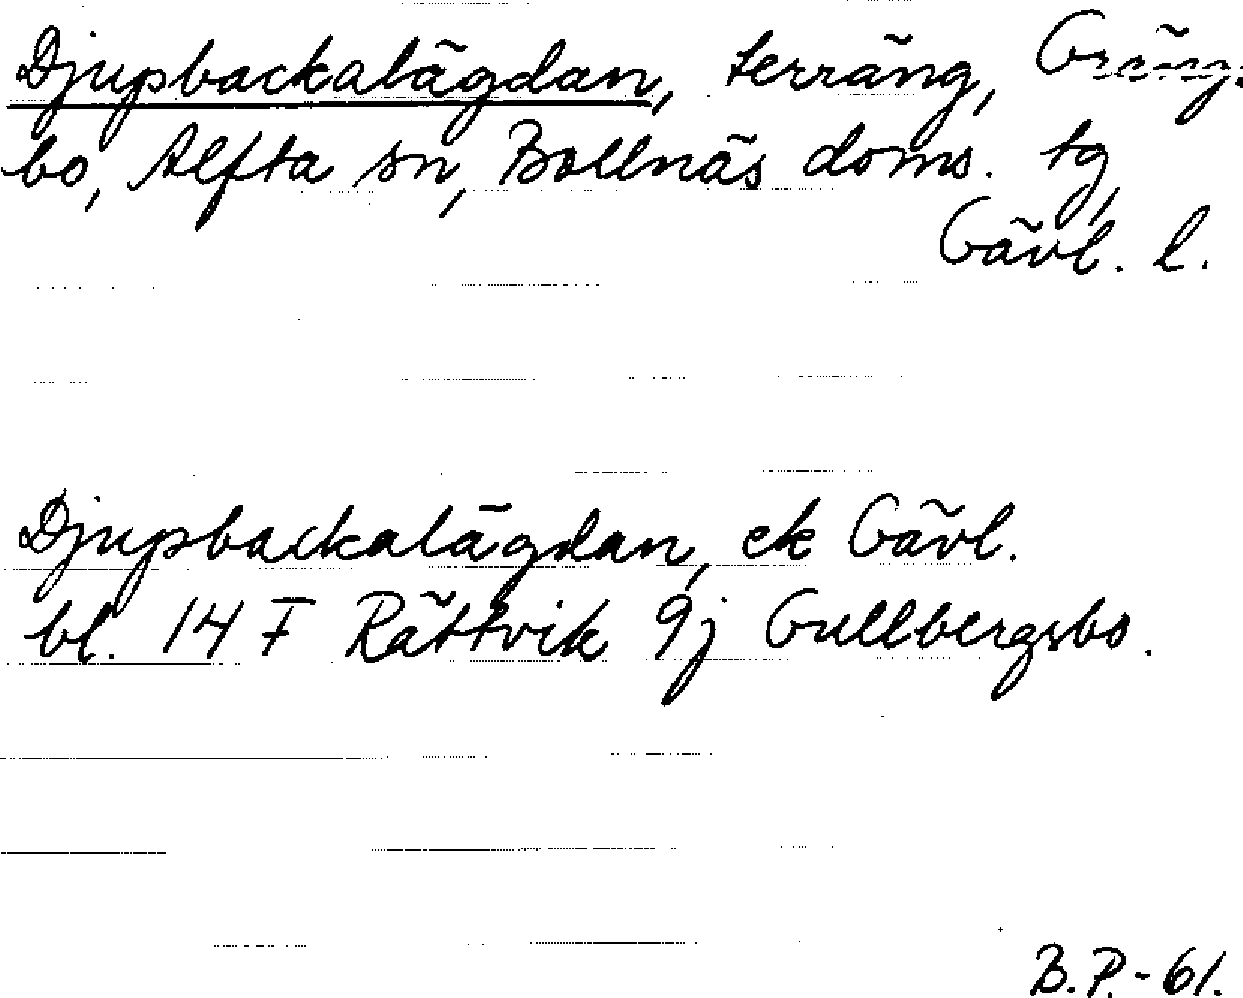 Djupbackalägdan, terräng, Gräng-
bo, Alfta sn, Bollnäs doms. tg,
Gävl. l.
Djupbackalägdan, ek Gävl.
bl. 14 F Rättvik 9j Gullbergsbo.
B.P.-61.